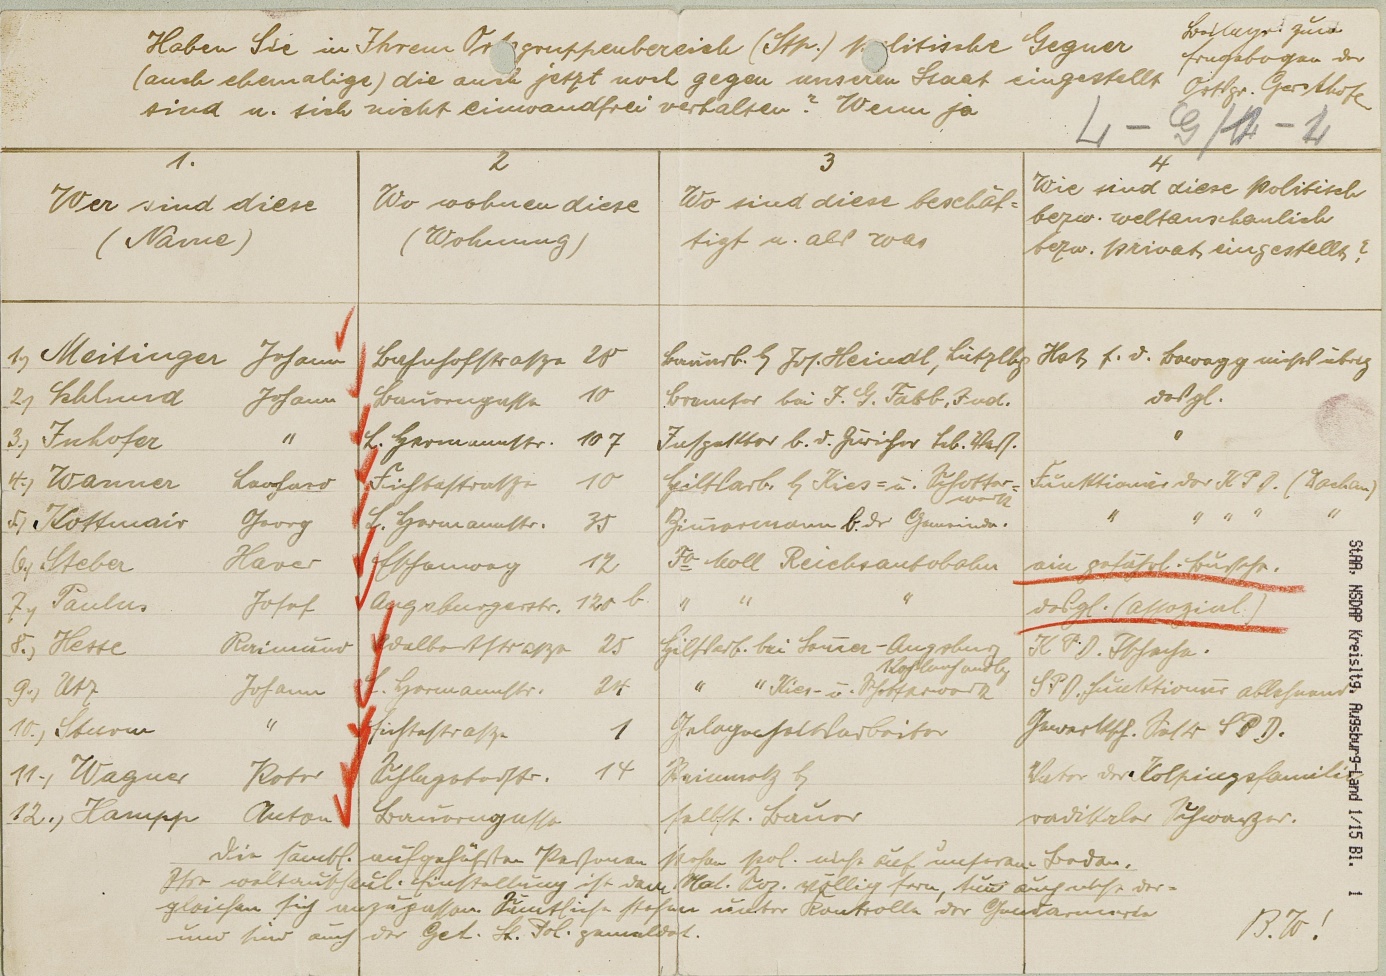 Haben Sie in Ihrem Ortsgruppenbereich (Stp.) politische Gegner
(auch ehemalige) die auch jetzt noch gegen unseren Staat eingestellt
sind u. sich nicht einwandfrei verhalten? Wenn ja
Beilage zum
Fragebogen der
Ortsgr. Gersthofen
1.
Wer sind diese
(Name)
2
Wo wohnen diese
(Wohnung)
3
Wo sind diese beschäf-
tigt u. als was
4
Wie sind diese politisch
bezw. weltanschaulich
bezw. privat eingestellt?
1.) Meitinger Johann Bahnhofstraße 28 bei Jos. Heindl, Hat f. d. Bewegg nichts übrig
2.) Schlund Johann Bauerngasse 10 bei I. G. Farb. Ind. desgl.
3.) Inhofer " L. Hermannstr. 107 Inspektor b. d. Züricher Leb. Vers. "
4.) Wanner Leonhard Fichtestraße 10 Hilfsarb. b. Kies- u. Schotter-werk Funktionär der K P D. (Dachau)
5.) Kottmair Georg L. Hermannstr. 35 Zimmermann b. der Gemeinde. " " " " "
6.) Steber Xaver Eschenweg 12 Fa Moll Reichsautobahn ein gefährl. Bursche.
7.) Paulus Josef Augsburgerstr. 120 b " " " desgl. (assozial.)
8.) Hesse Raimund Adalbertstraße 25 Hilfsarb. bei Augsburg Kohlenhandlg K P D.
9.) Utz Johann L. Hermannstr. 24 " " Kies- u. Schotterwerk S P D. Funktionär ablehnend
10.) Sturm " Fichtestraße 1 Gelegenheitsarbeiter Gewerksch. S P D.
11.) Wagner Peter Schlageterstr. 14 Steinmetz Vater der Kolpingsfamilie
12.) Hampp Anton Bauerngasse selbst. Bauer radikaler Schwarzer.
Die sämtl. aufgeführten Personen stehen pol. nicht auf unserem Boden.
Ihre weltanschaul. Einstellung ist dem Nat. Soz. völlig fern, tun auch nicht der-
gleichen sich anzupassen. Sämtliche stehen unter Kontrolle der Gendarmerie
und sind auch der Geh. St. Pol. gemeldet.
B.W!
StAA, NSDAP Kreisltg. Augsburg-Land 1/15 Bl. 1